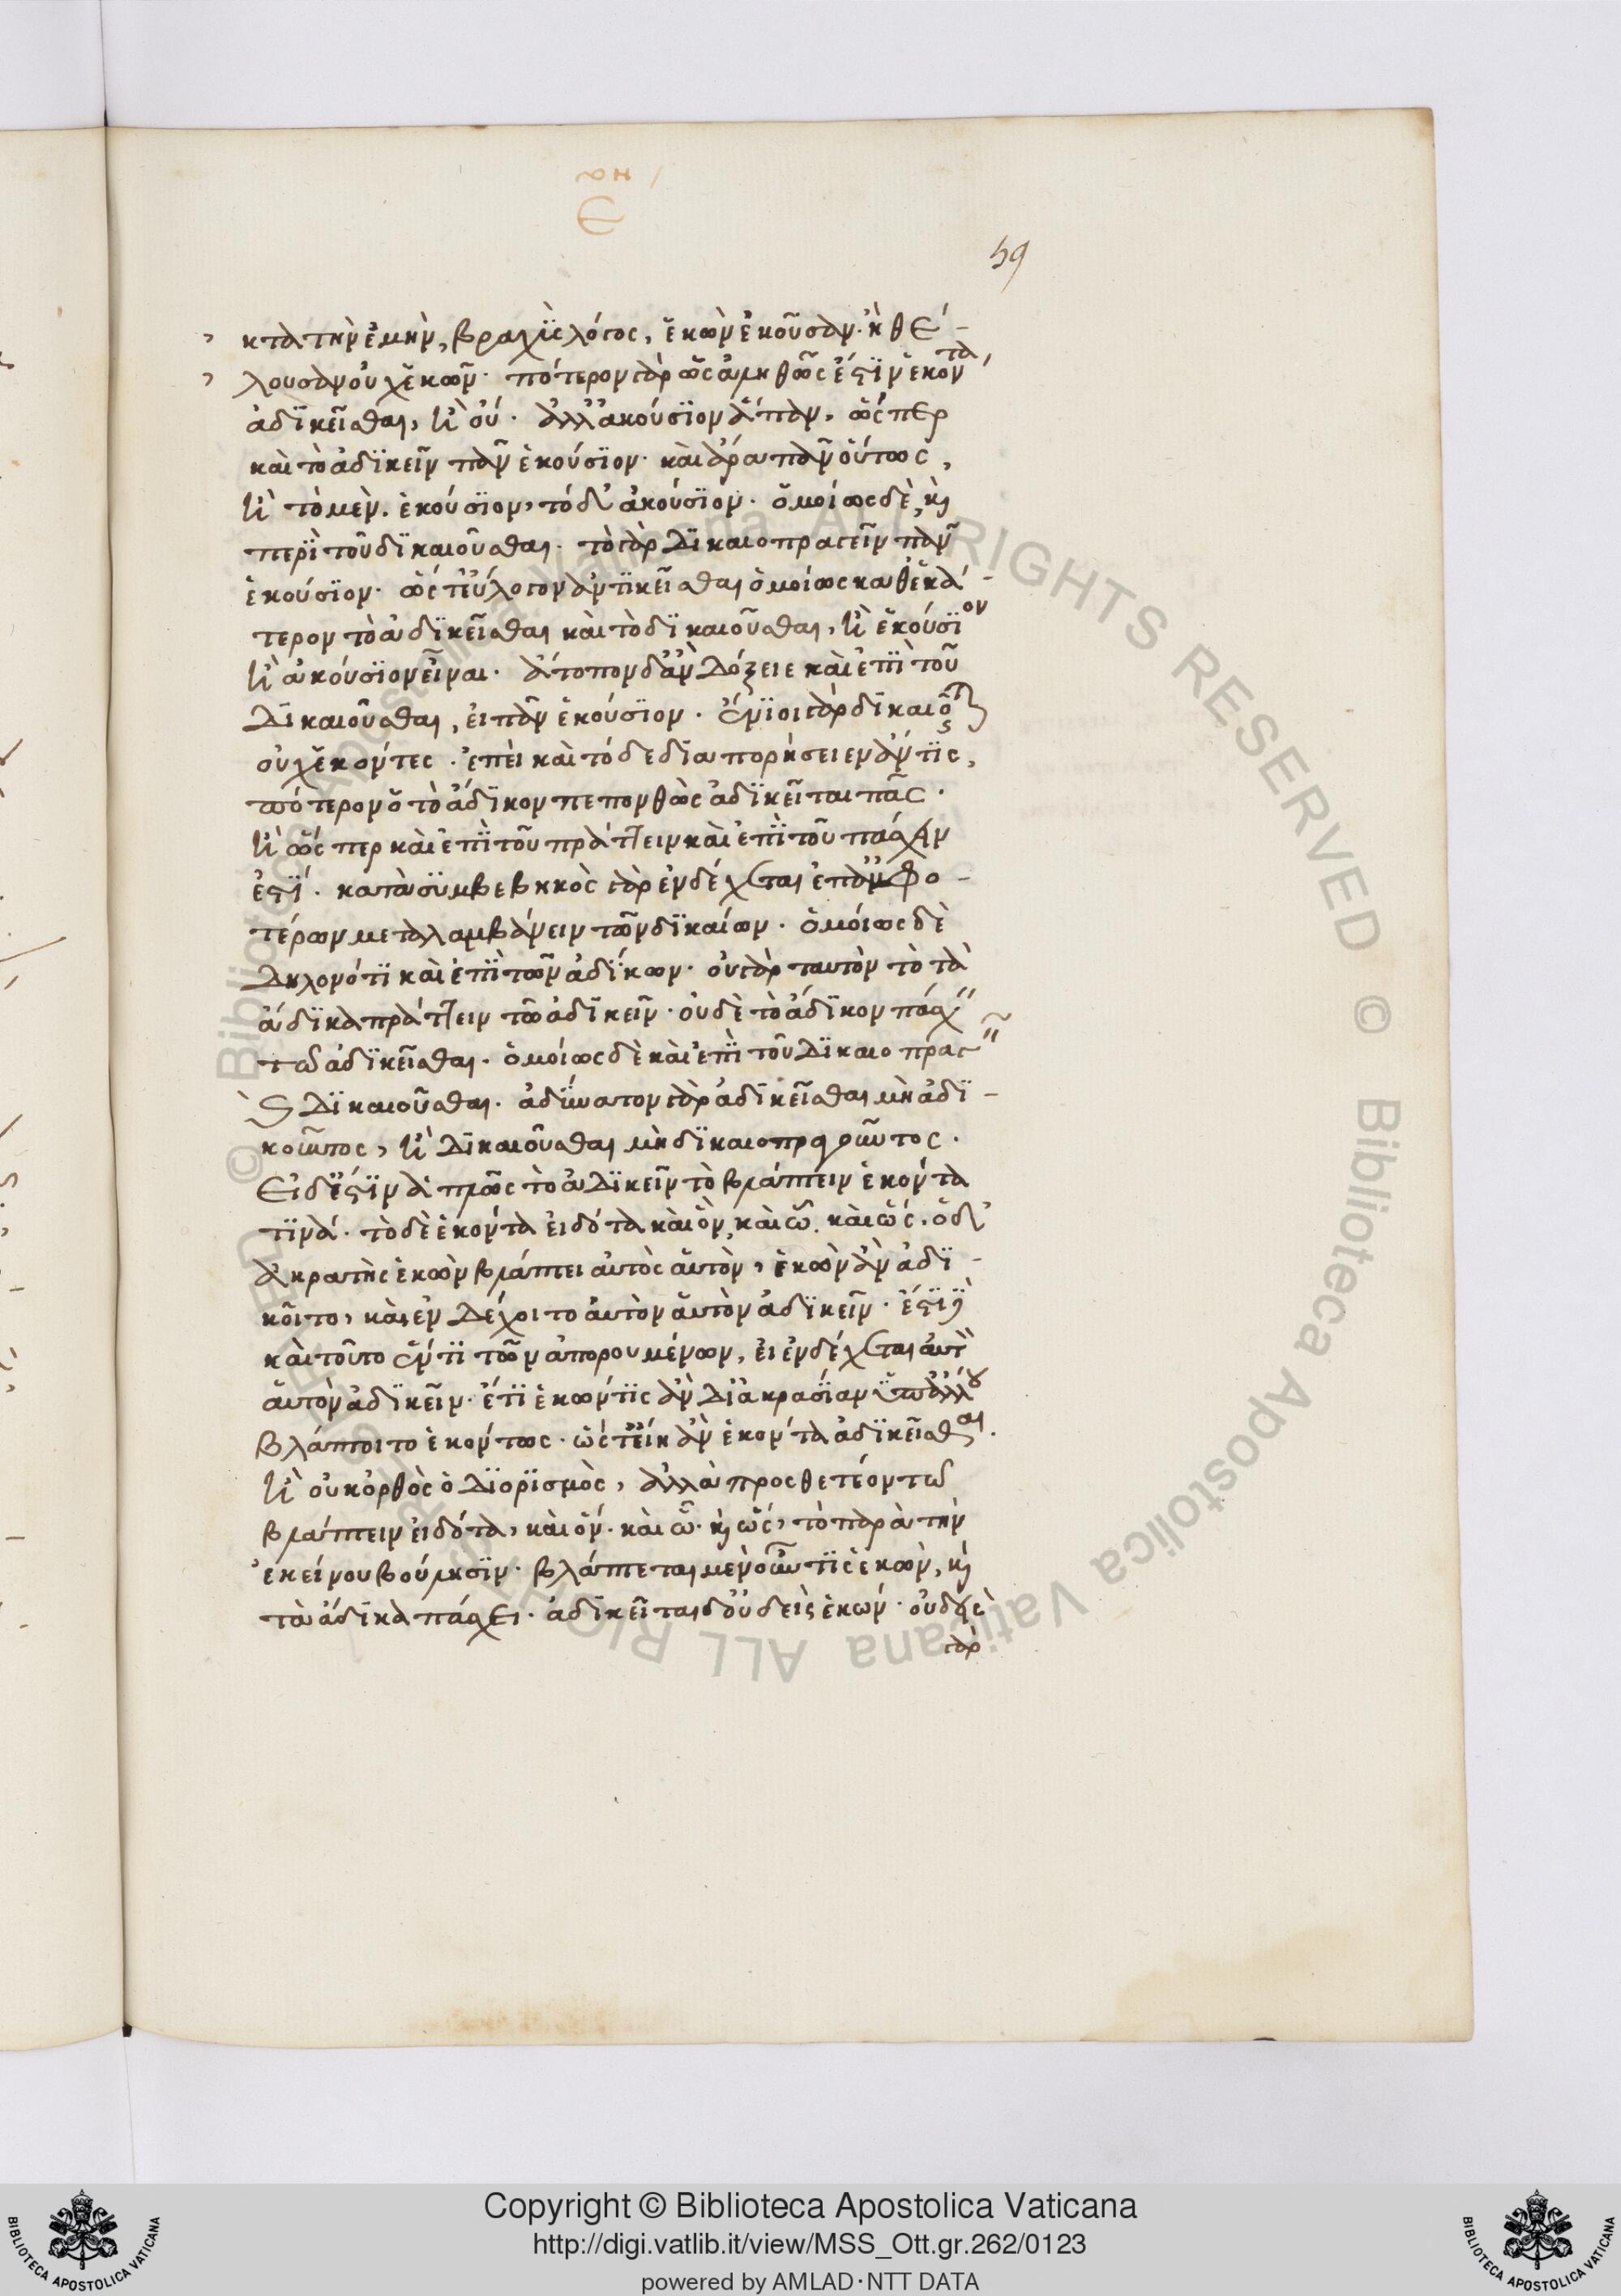 ε
59
κτα τὴν ἐμὴν, βραχῢς λόγος, ἑκὼν ἑκοῦσαν. ἢ θέ-
λουσαν οὐχ ἑκών. πότερον γὰρ ὡς ἀληθῶς ἐστὶν ἑκόντα
ἀδικεῖσθαι, ἢ οὔ. ἀλλ' ἀκούσιον ἅπαν, ὥσπερ
καὶ τὸ ἀδικεῖν πᾶν ἑκούσιον. καὶ ἆρα πᾶν οὕτως,
ἢ τὸ μὲν. ἑκούσιον, τὸ δ' ἀκούσιον. ὁμοίως δὲ, καὶ
περὶ τοῦ δικαιοῦσθαι. τὸ γὰρ δικαιοπραγεῖν πᾶν
ἑκούσιον. ὥστ' εὔλογον ἀντικεῖσθαι ὁμοίως καθ' ἑκά-
τερον τὸ ἀδικεῖσθαι καὶ τὸ δικαιοῦσθαι, ἢ ἑκούσιον
ἢ ἀκούσιον εἶναι. ἄτοπον δ' ἂν δόξειε καὶ ἐπὶ τοῦ
δικαιοῦσθαι, εἰ πᾶν ἑκούσιον. ἔνιοι γὰρ δικαιοῦνται
οὐχ ἑκόντες. ἐπεὶ καὶ τόδε διαπορήσειεν ἄν τις,
πότερον ὁ τὸ ἄδικον πεπονθὼς ἀδικεῖται πᾶς.
ἢ ὥσπερ καὶ ἐπὶ τοῦ πράττειν καὶ ἐπὶ τοῦ πάσχειν
ἐστί. κατὰ συμβεβηκὸς γὰρ ἐνδέχεται ἐπ' ἀμφο-
τέρων μεταλαμβάνειν τῶν δικαίων. ὁμοίως δὲ
δηλονότι καὶ ἐπὶ τῶν ἀδίκων. οὐ γὰρ ταυτὸν τὸ τὰ
ἄδικα πράττειν τῶ ἀδικεῖν. οὐδὲ τὸ ἄδικον πάσχειν
τῶ ἀδικεῖσθαι. ὁμοίως δὲ καὶ ἐπὶ τοῦ δικαιοπραγεῖν
καὶ δικαιοῦσθαι. ἀδύνατον γὰρ ἀδικεῖσθαι μὴ ἀδι-
κοῦντος, ἢ δικαιοῦσθαι μὴ δικαιοπραγοῦντος.
Εἰ δ' ἐστὶν ἁπλῶς τὸ ἀδικεῖν τὸ βλάπτειν ἑκόντα
τινά. τὸ δὲ ἑκόντα εἰδότα καὶ ὃν, καὶ ὧ. καὶ ὥς. ὁ δ'
ἀκρατὴς ἑκὼν βλάπτει αὐτὸς αὑτὸν, ἑκὼν ἂν ἀδι-
κοῖτο, καὶ ἐνδέχοιτο αὐτὸν αὑτὸν ἀδικεῖν. ἔστι δὲ
καὶ τοῦτο ἕν τι τῶν ἀπορουμένων, εἰ ἐνδέχεται αὐτὸν
αὑτὸν ἀδικεῖν. ἔτι ἑκών τις ἂν δι' ἀκρασίαν ὑπ' ἄλλου
βλάπτοιτο ἑκόντος. ὥστ' εἴη ἂν ἑκόντα ἀδικεῖσθαι.
ἢ οὐκ ὀρθὸς ὁ διορισμὸς, ἀλλὰ προσθετέον τῶ
βλάπτειν εἰδότα, καὶ ὃν. καὶ ὧ. καὶ ὥς, τὸ παρὰ τὴν
ἐκείνου βούλησιν. βλάπτεται μὲν οὖν τις ἑκὼν, καὶ
τὰ ἄδικα πάσχει. ἀδικεῖται δ' οὐδεὶς ἑκών. οὐδεὶς
γὰρ
Copyright © Biblioteca Apostolica Vaticana
http://digi.vatlib.it/view/MSS_Ott.gr.262/0123
powered by AMLAD·NTT DATA